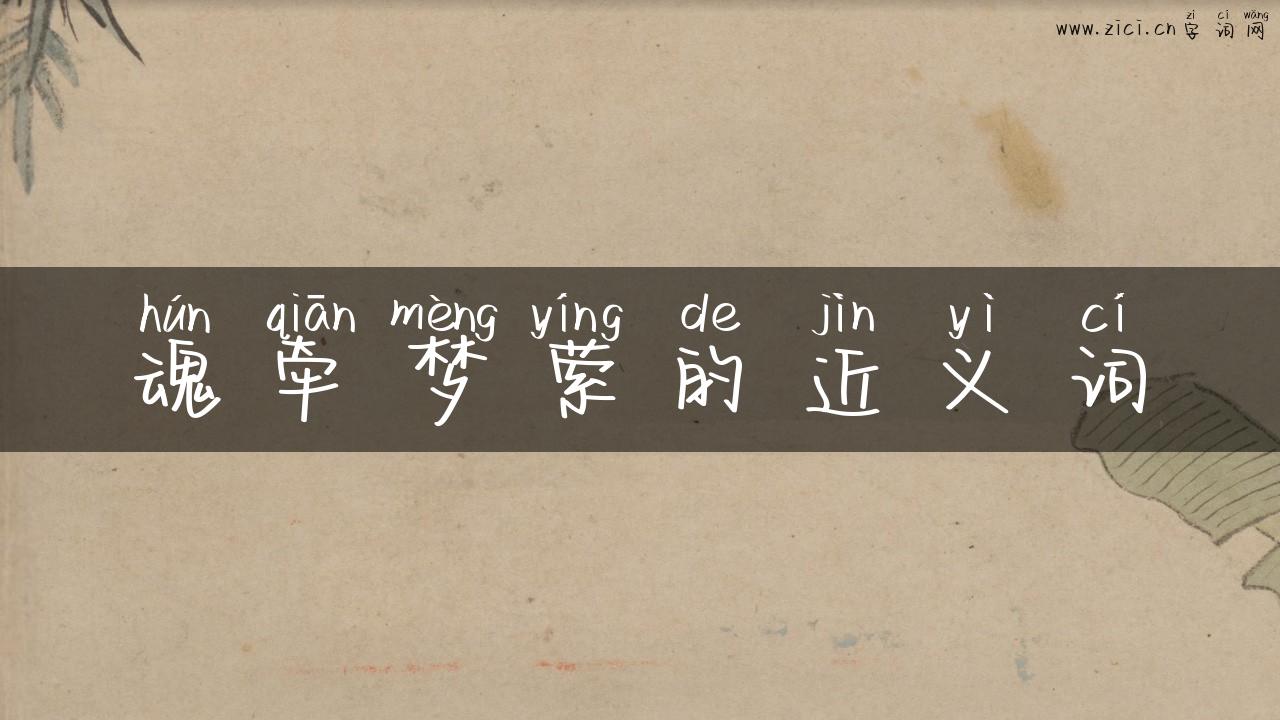 zì cí wǎng
www.zici.cn 字词网
hún qiān mèng yíng de jìn yì cí
魂牵梦萦的近义词